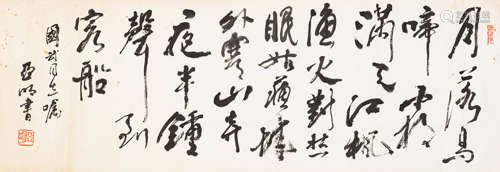 月落烏
啼霜
滿天江楓
漁火對愁
眠姑蘇城
外寒山寺
夜半鍾
聲到
客船
國武同志囑
亞明書